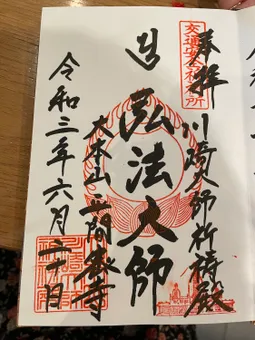 交通安全祈祷所
奉拝 川崎大師祈祷殿
弘法大師
大本山平間教寺
令和三年六月二十日